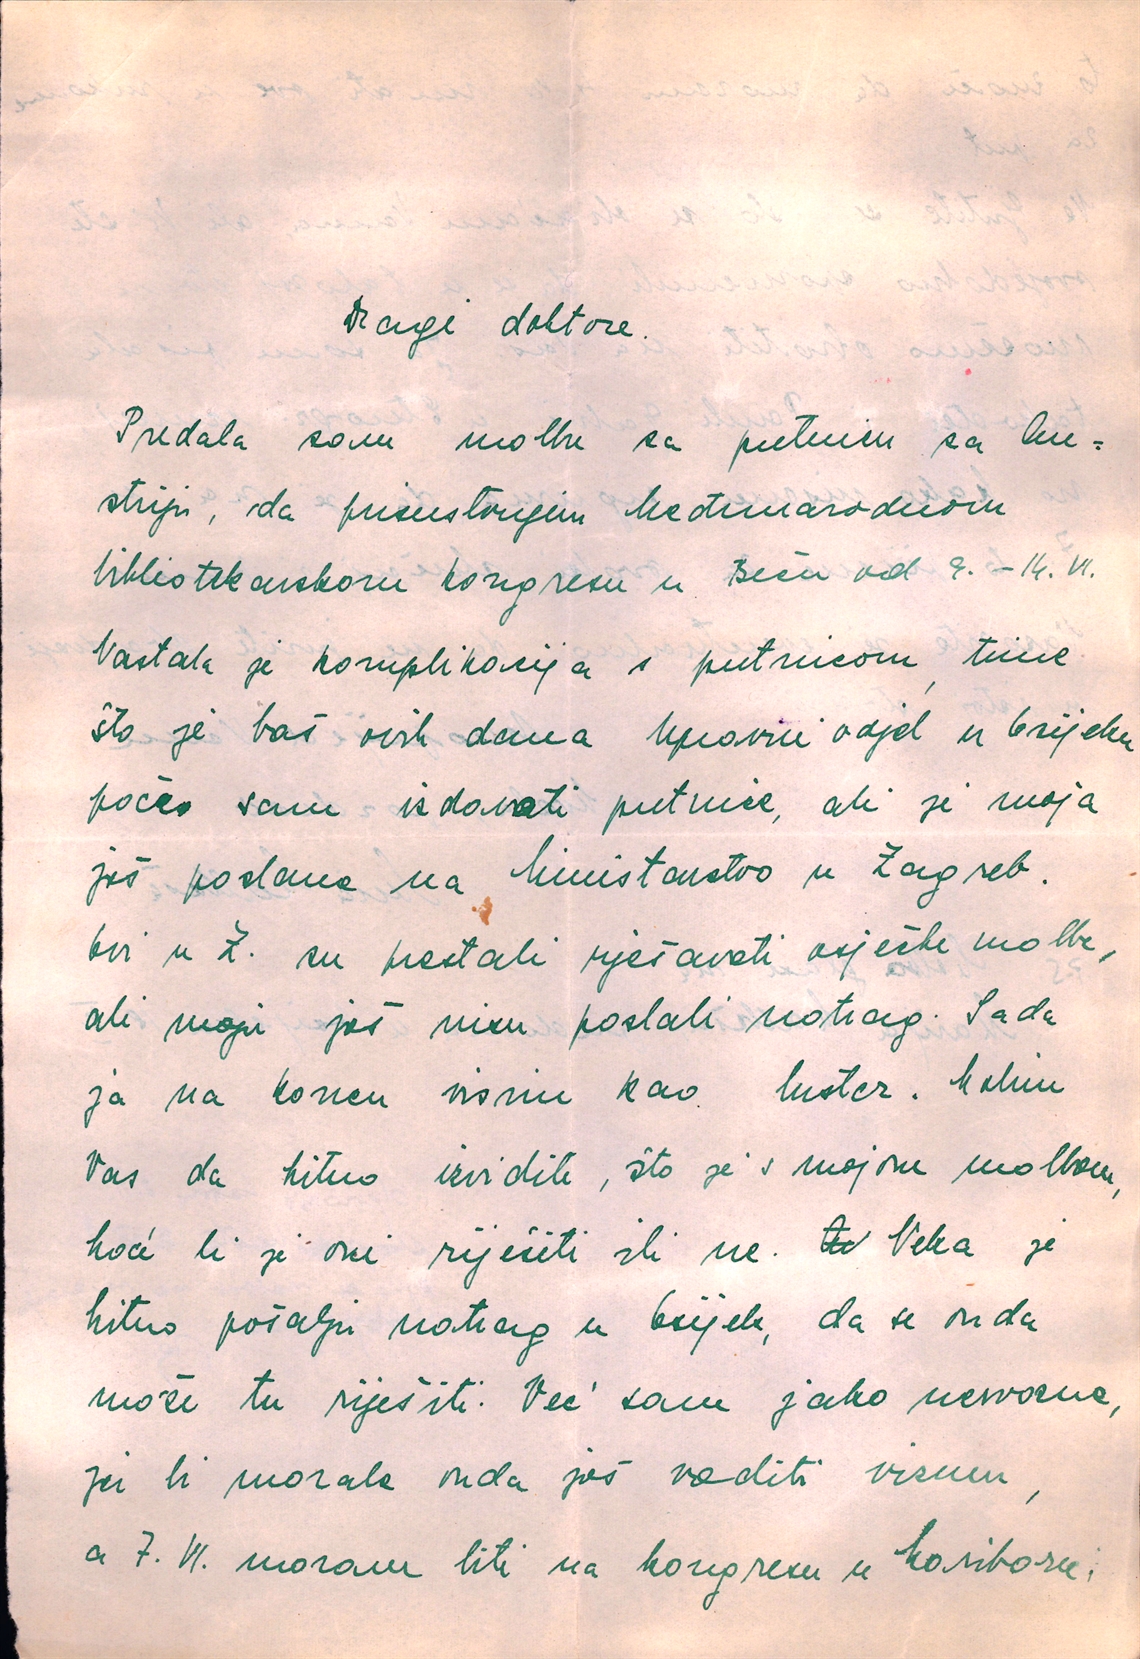 Dragi doktore.
Predala sam molbu za putnicu za Au=
striju, da prisustvujem Međunarodnom
bibliotekarskom kongresu u Beču od 9. – 14. VI.
Nastala je komplikacija s putnicom, time
što je baš ovih dana Upravni odjel u Osijeku
počeo sam izdavati putnice, ali je moja
još poslana na Ministarstvo u Zagreb.
Ovi u Z. su prestali rješavati osječke molbe,
ali moju još nisu poslali natrag. Sada
ja na koncu visim kao luster. Molim
Vas da hitno izvidite, što je s mojom molbom,
hoće li je oni riješiti ili ne. Neka je
hitno pošalju natrag u Osijek, da se onda
može tu riješiti. Već sam jako nervozna,
jer bi morala onda još vaditi vizum,
a 7. VI. moram biti na kongresu u Mariboru;